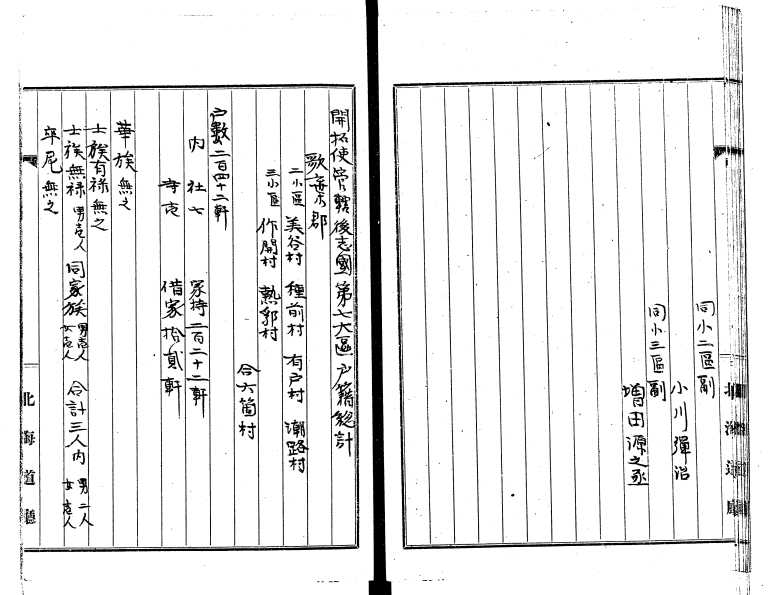 同小二區副
小川彈治
同小三區副
増田源之丞
北海道廳
開拓使管轄後志國第七大區戸籍總計
歌棄郡
二小區 美谷村 種前村 有戸村 潮路村
三小區 作開村 熱郛村
合六箇村
戸數二百四十二軒
内 社七 家持二百二十二軒
寺壱 借家拾貳軒
華族無之
士族有禄無之
士族無禄男壱人 同家族男壱人女壱人 合計三人内男二人女壱人
卒尼無之
北海道廳